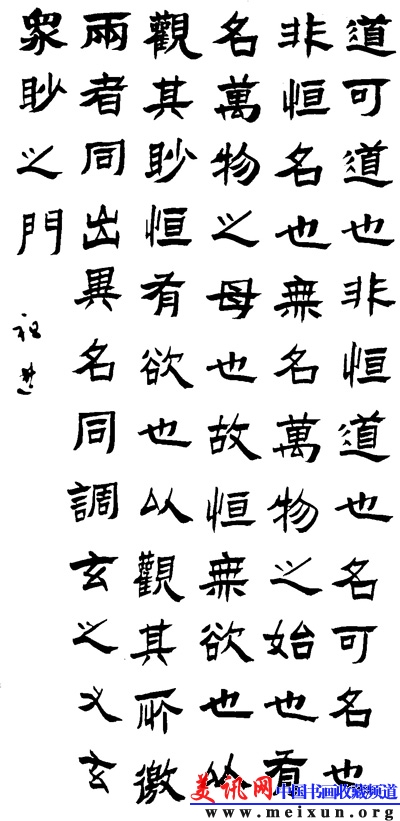 道可道也非恒道也名可名也
非恒名也無名萬物之始也有
名萬物之母也故恒無欲也以
觀其眇恒有欲也以觀其所徼
兩者同出異名同調玄之又玄
眾眇之門
美讯网 中国书画收藏频道
www.meixun.org